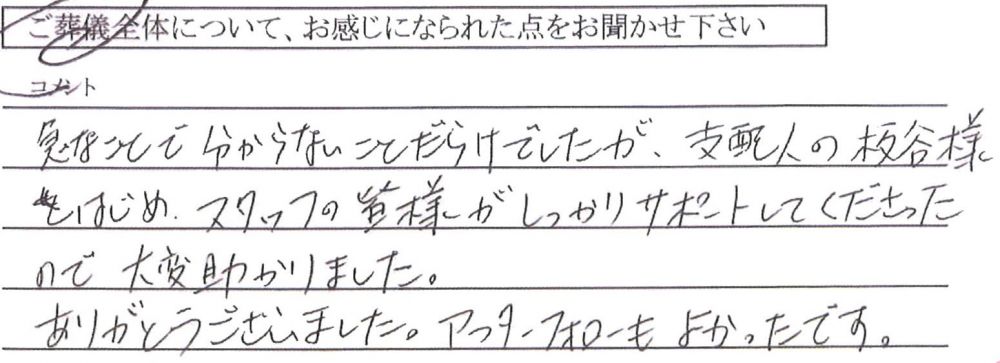 ご葬儀全体について、お感じになられた点をお聞かせ下さい
コメント
急なことで分からないことだらけでしたが、支配人の板谷様
をはじめ、スタッフの皆様がしっかりサポートしてくださった
ので大変助かりました。
ありがとうございました。アフターフォローもよかったです。